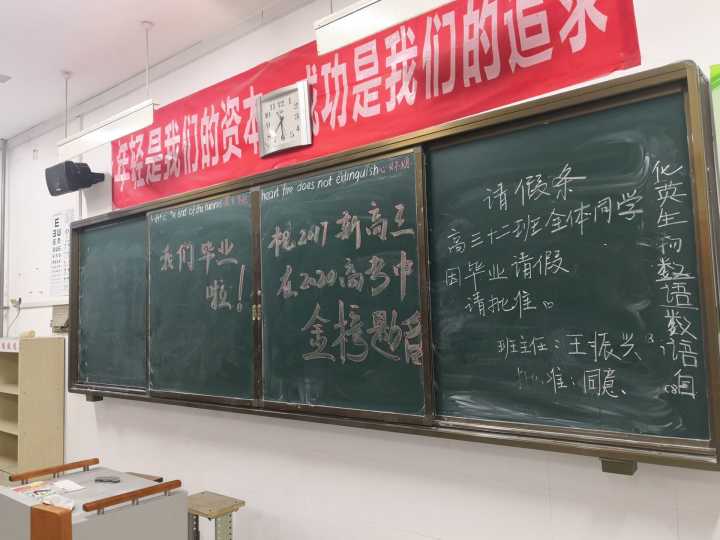 年轻是我们的资本 成功是我们的追求
light at the end of the tunnel
heart fire does not extinguish 心火不熄
我们毕业
啦!
祝2017新高三
在2020高考中
金榜题名
请假条
高三十二班全体同学
因毕业请假
请批准。
班主任:王振兴
批准:同意、
化英生物数语数语自